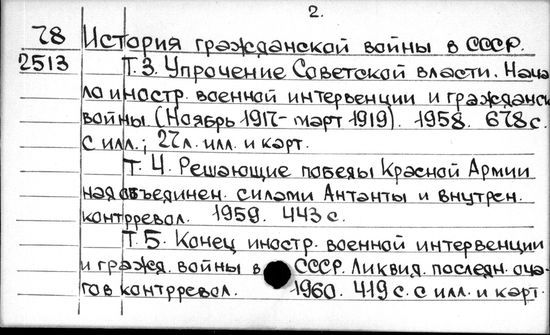 2.
78 История гражданской войны в СССР.
2513 Т. 3. Упрочение Советской власти. Нача-
ло иностр. военной интервенции и гражданск
войны. (Ноябрь 1917 - март 1919). 1958. 678 с.
с илл.; 27 л. илл. и карт.
Т. 4. Решающие победы Красной Армии
над объединен. силами Антанты и внутрен.
контрревол. 1959. 443 с.
Т. 5. Конец иностр. военной интервенции
и гражд. войны в СССР. Ликвид. последн. оча-
гов контрревол. 1960. 419 с. с илл. и карт.